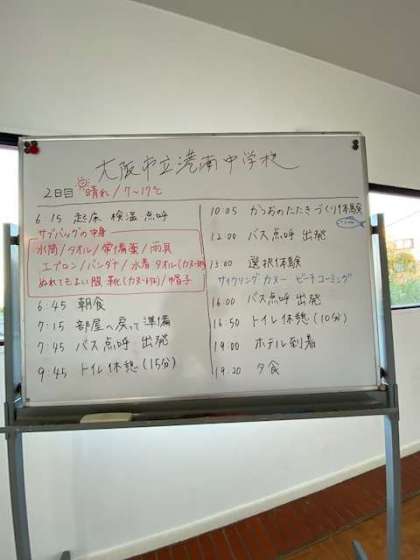 大阪市立港南中学校
2日目 晴れ/7~17℃
6:15 起床 検温 点呼
サブバッグの中身
水筒/タオル/常備薬/雨具
エプロン/バンダナ/水着 タオル(カヌー
ぬれてもよい服 靴(カヌー)/帽子
6:45 朝食
7:15 部屋へ戻って準備
7:45 バス点呼 出発
9:45 トイレ休憩(15分)
10:05 かつおのたたきづくり体験
12:00 バス点呼 出発
13:00 選択体験
サイクリング カヌー ビーチコーミング
16:00 バス点呼 出発
16:50 トイレ休憩(10分)
19:00 ホテル到着
19:20 夕食